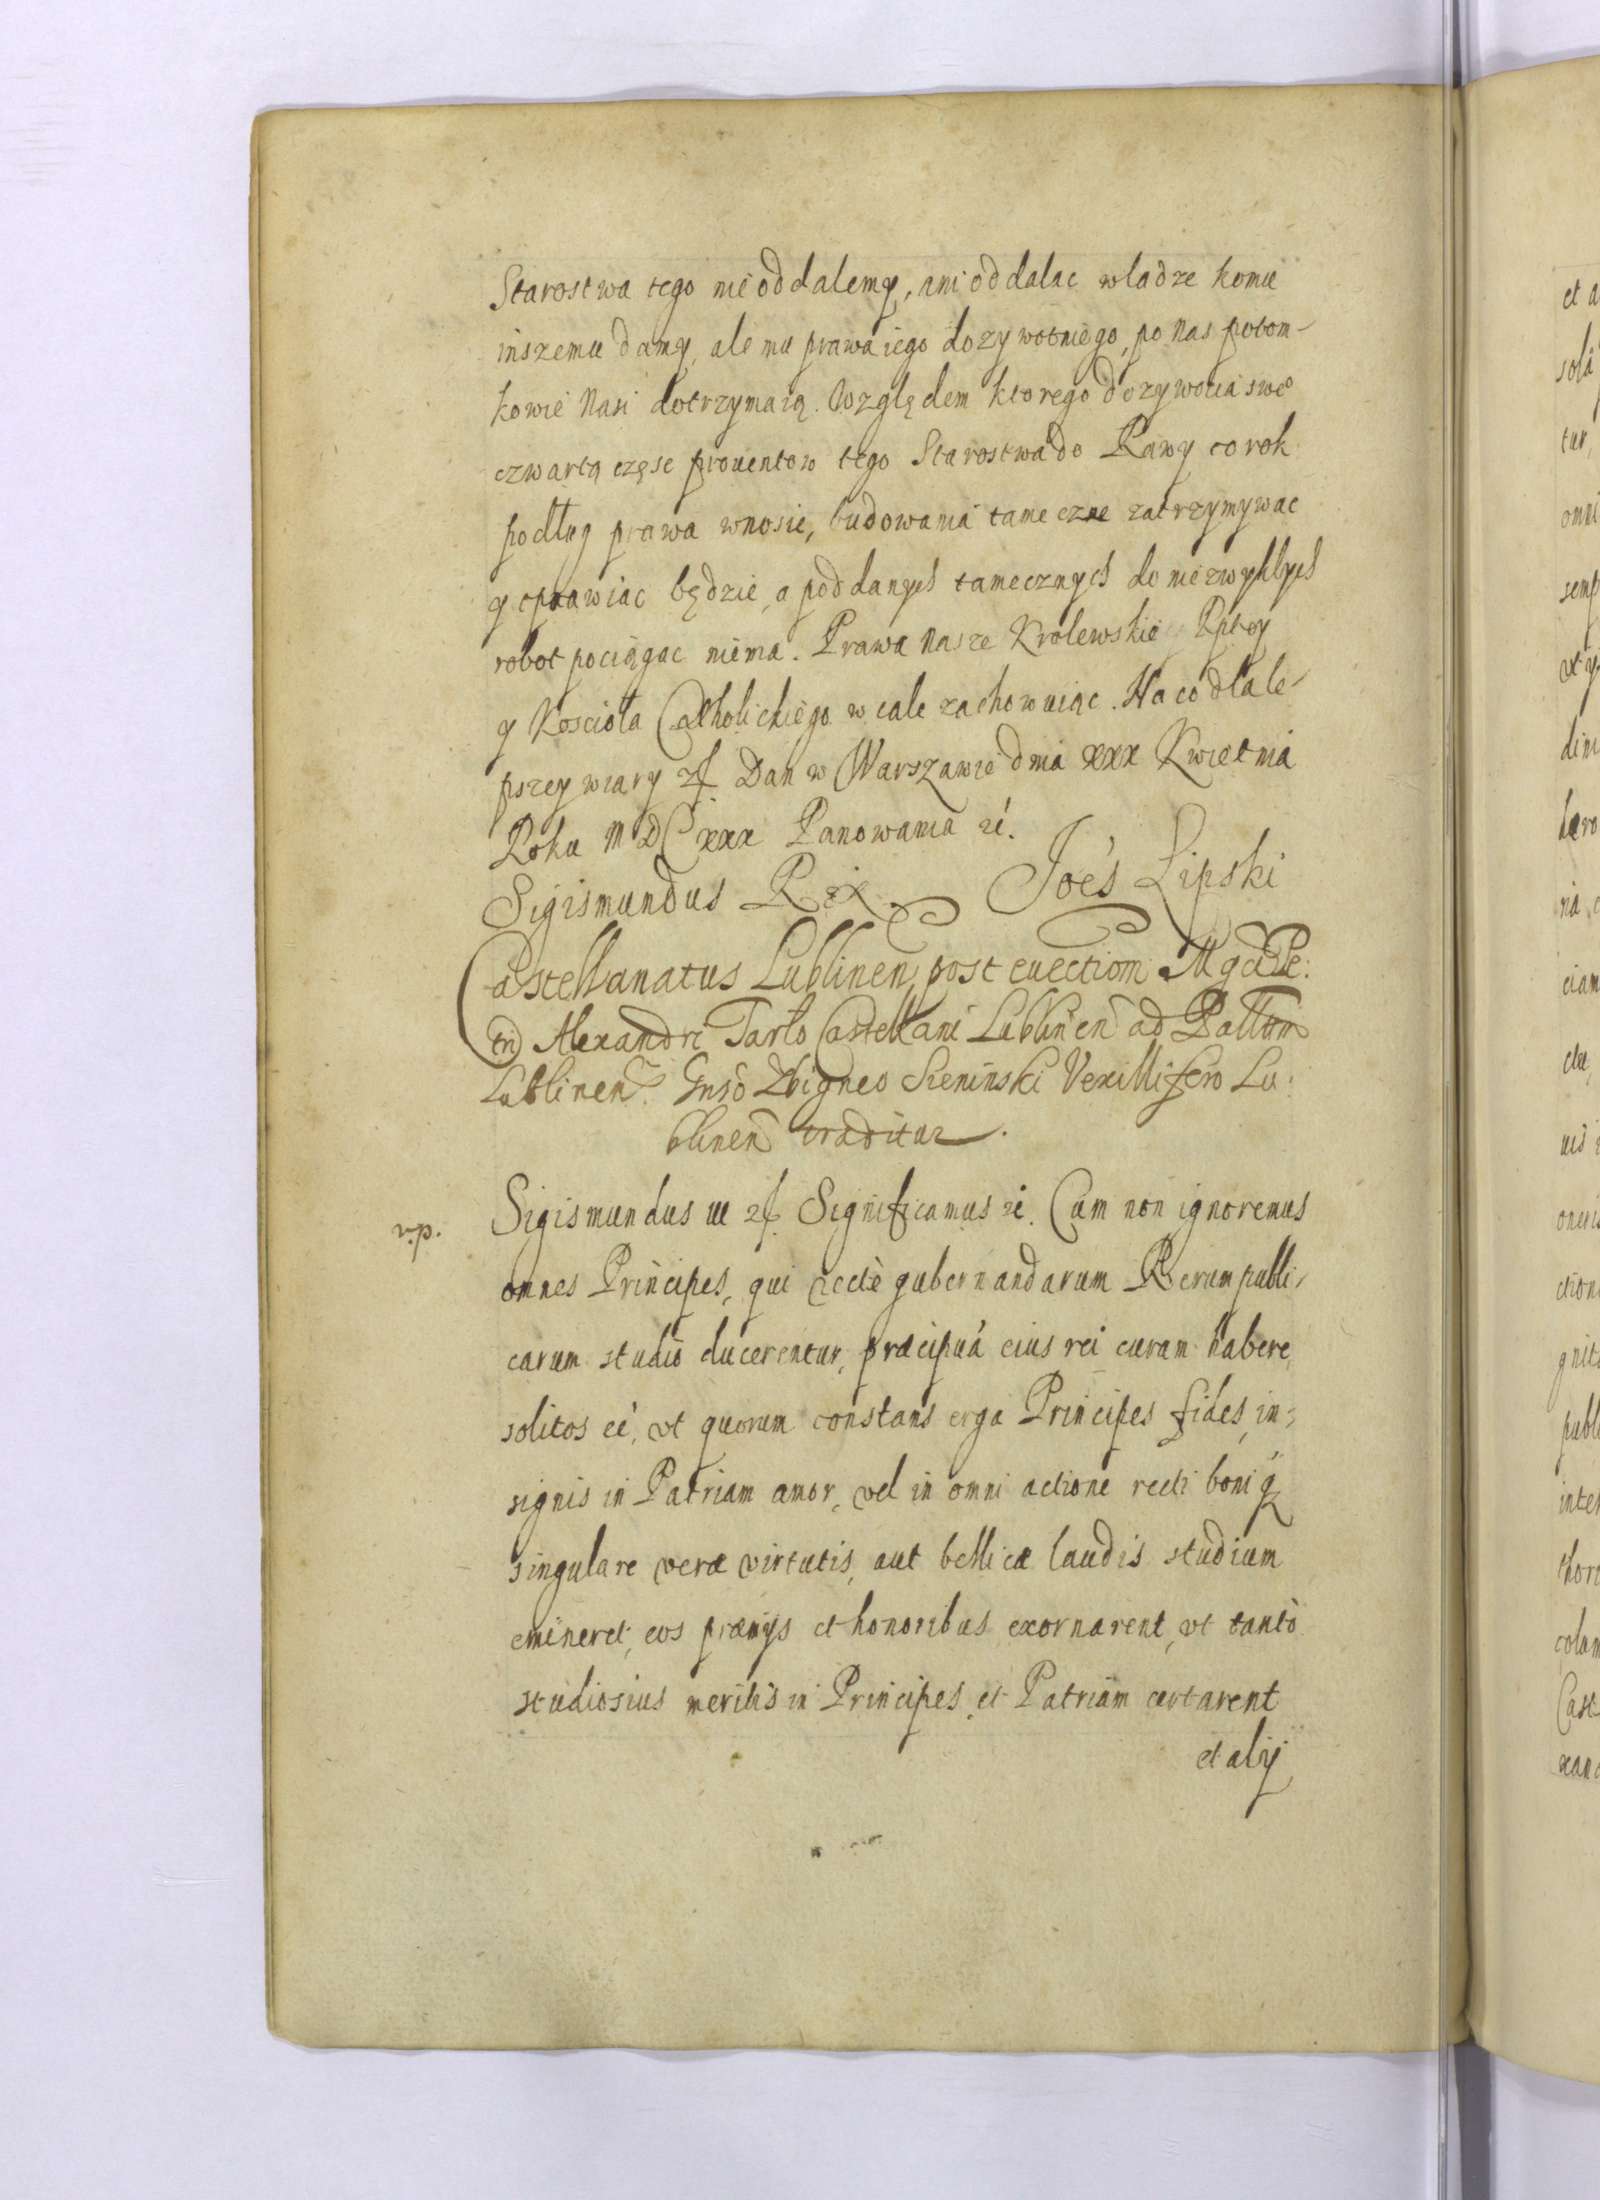 Starostwa tego nie oddalemy, ani oddalac wladze komu
inszemu damy, ale mu prawa iego dozywotniego, po nas potom-
kowie nasi dotrzymaią. Względem ktorego dozywocia sweo
czwartą częsc prouentow tego Starostwa do Rawy co rok
podług prawa wnosic, budowania tameczne zatrzymywac
y oprawiac będzie, a poddanych tamecznych do niezwykłych
robot pociągac niema. Prawa nasze Krolewskie y Rptey
y Kosciola Catholickiego w cale zachowuiąc. Na co dla le-
pszey wiary Dan w Warszawie dnia xxx Kwietnia
Roku MDCxxx Panowania
Sigismundus Rex. Joēs Lipski
Castellanatus Lublinen post euection Mgci Pe:
tri Alexandri Tarlo Castellani Lublinen ad Pallum
Lublinen. Gnso Zbigneo Sieninski Vexillifero Lu:
blinen traditur.
v.p.
Sigismundus III Significamus Cum non ignoremus
omnes Principes, qui rectè gubernandarum Rerumpubli-
carum studio ducerentur, præcipuá eius rei curam habere
solitos eé, vt quorum constans erga Principes fides, in-
signis in Patriam amor, vel in omni actione recti boniq
singulare veræ virtutis, aut bellicæ laudis studium
emineret, eos præmijs et honoribus exornarent, vt tantò
studiosius meritis in Principes et Patriam certarent
et alij
et a
solá
tur,
omni
semp